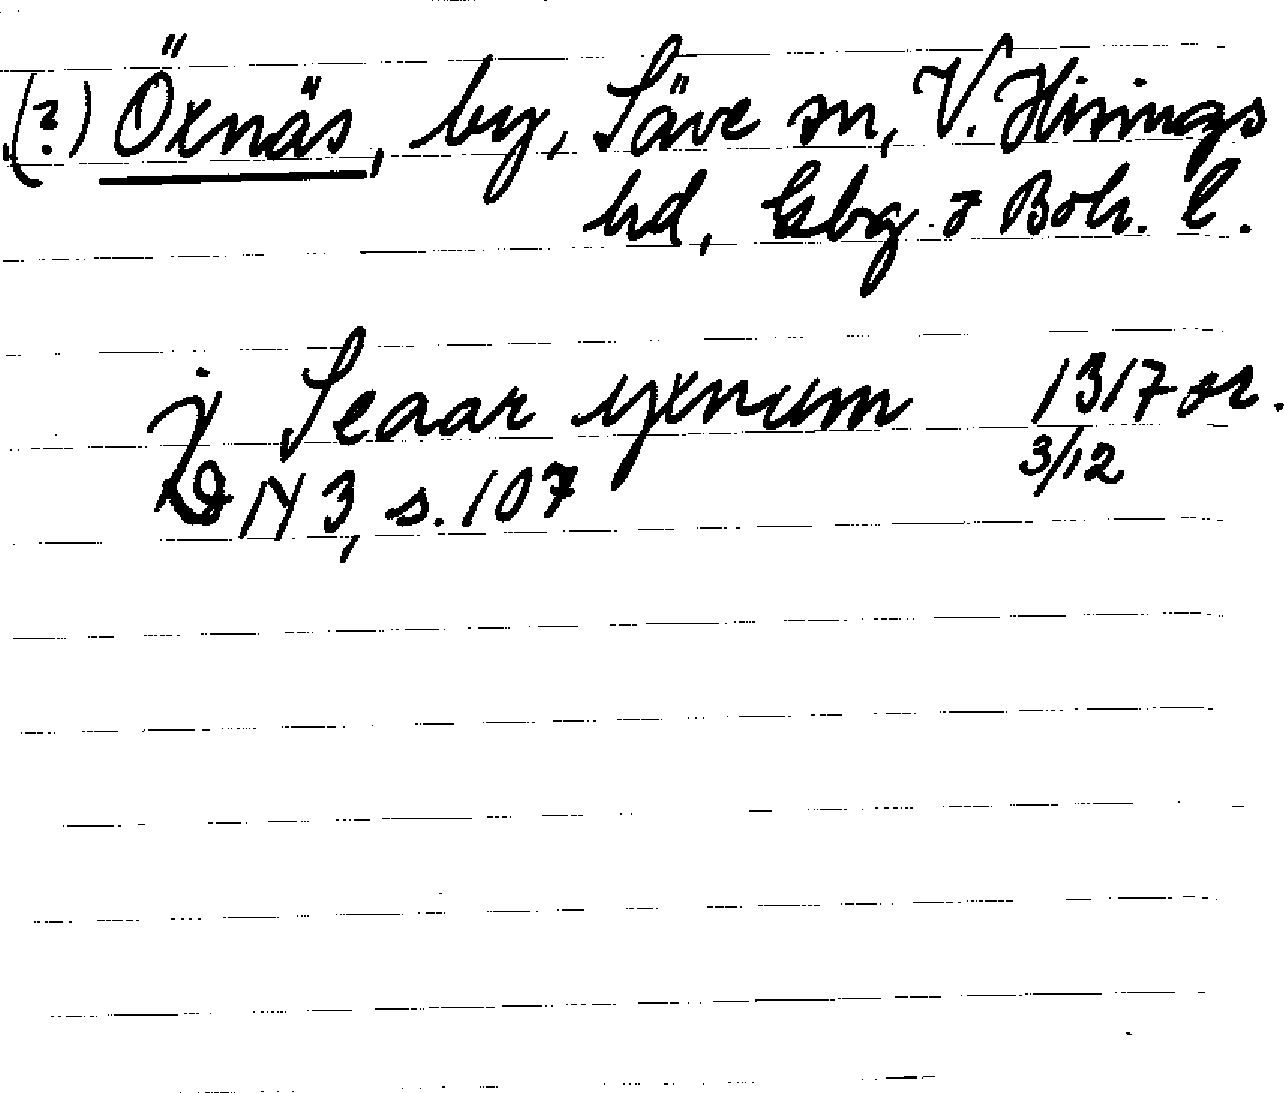 (?) Öxnäs, by, Säve sn, V. Hisings
hd, Gbg. o Boh. l.
j Seaar yxnum 1317 or.
3/12
DN 3, s. 107